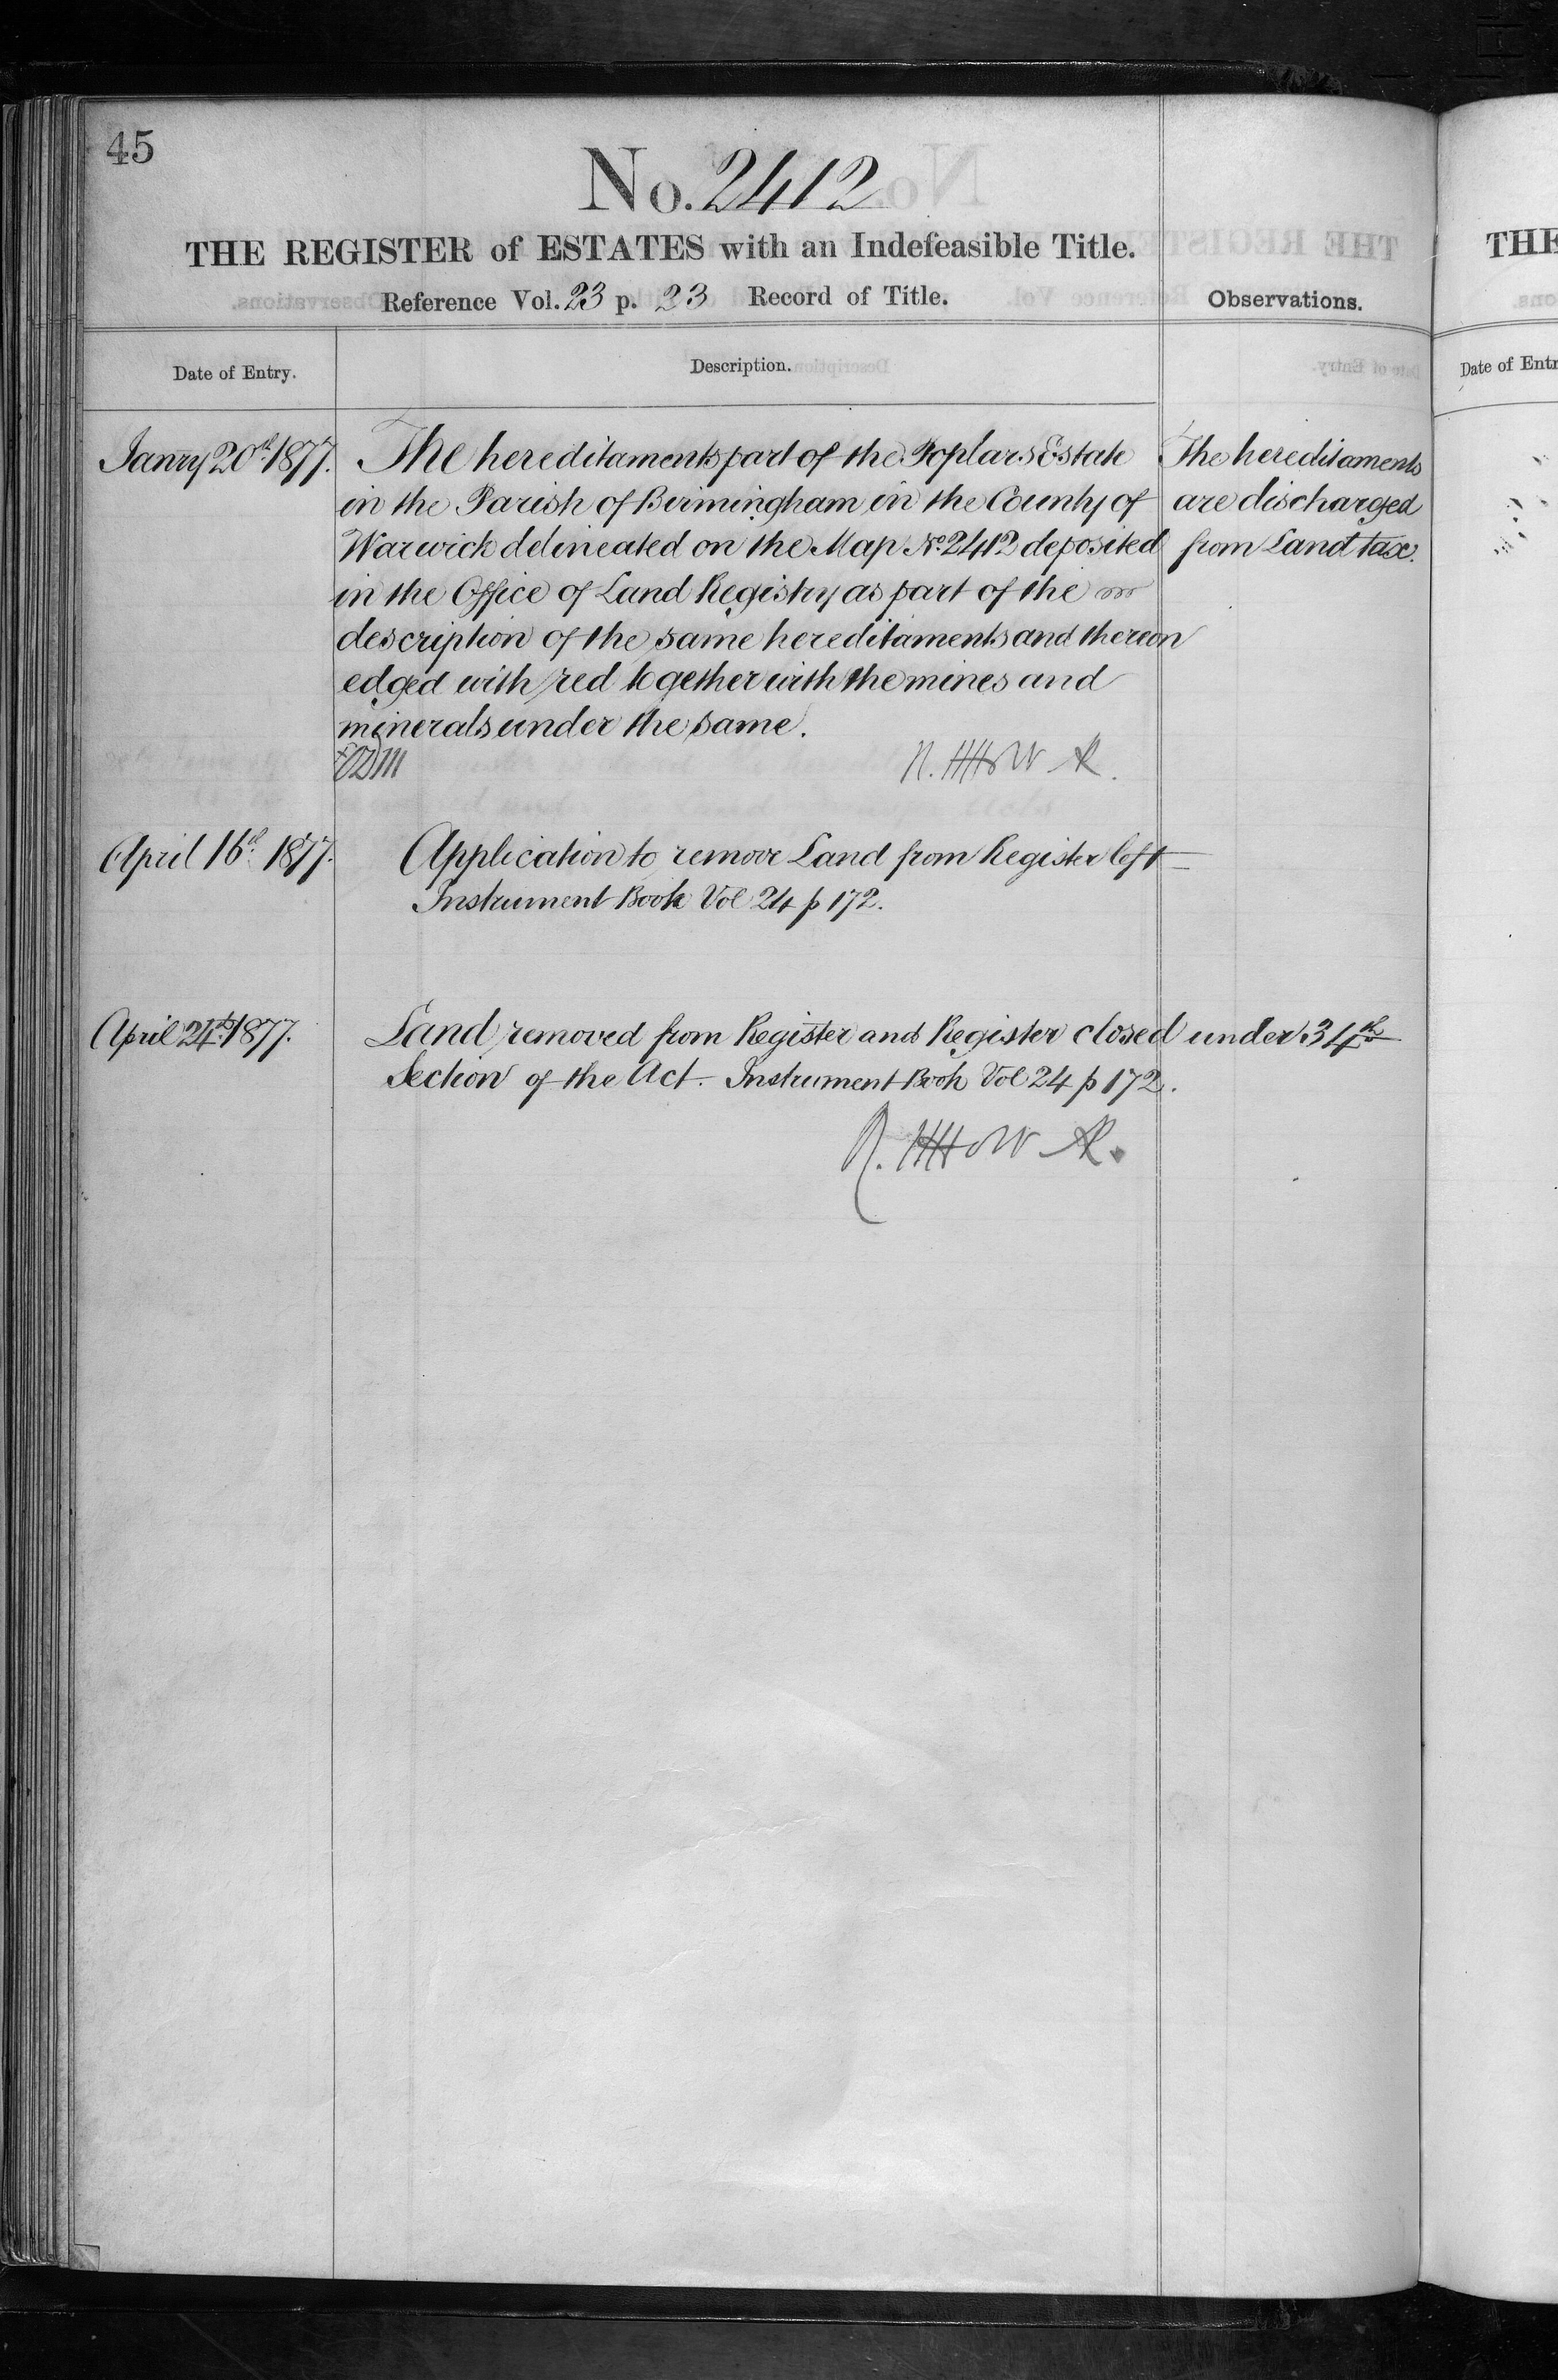 45
No. 2412
THE REGISTER of ESTATES with an Indefeasible Title.
Reference Vol. 23 p. 23 Record of Title.
Observations.
Date of Entry.
Description.
Janry 20th 1877.
The hereditaments part of the Poplars Estate
in the Parish of Birmingham in the County of
Warwick delineated on the Map No. 2412 deposited
in the Office of Land Registry as part of the
description of the same hereditaments and thereon
edged with red together with the mines and
minerals under the same.
The hereditaments
are discharged
from Land tax.
April 16th 1877.
Application to remove Land from Register left
Instrument Book Vol 24 p 172.
April 24th 1877.
Land removed from Register and Register closed under 34th
Section of the Act. Instrument Book Vol 24 p 172.
THE
Date of Entr